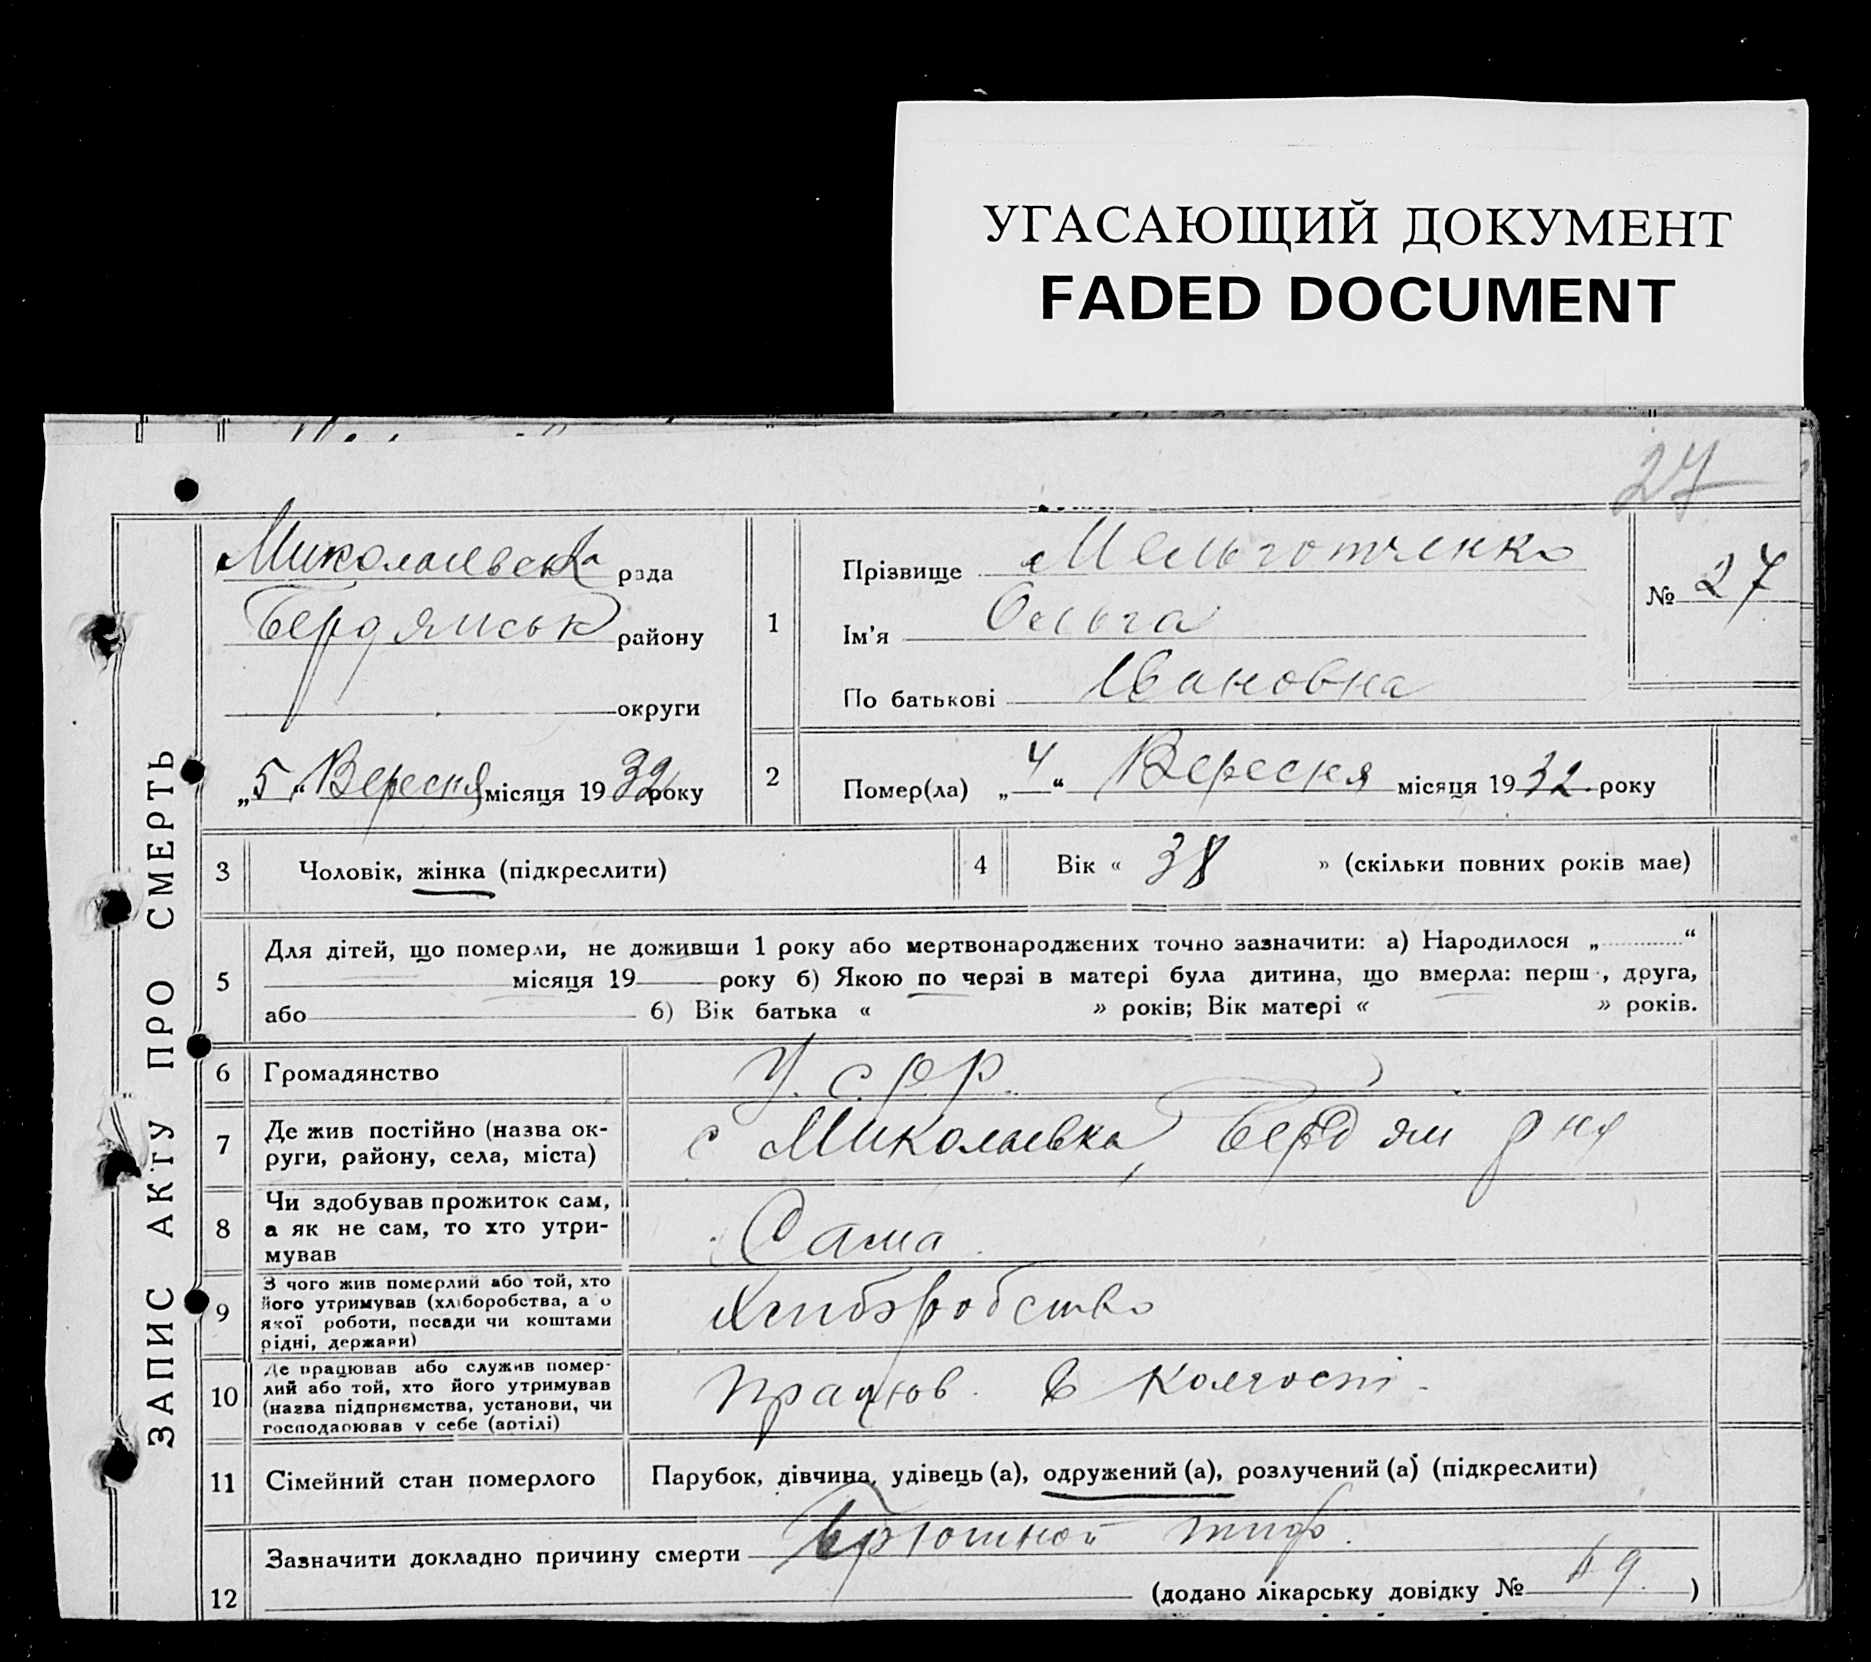 УГАСАЮЩИЙ ДОКУМЕНТ
FADED DOCUMENT
27
ЗАПИС АКТУ ПРО СМЕРТЬ
Миколаевська рада
Бердянськ району
округи
„5“ Вересня місяця 1932 року
1
Прізвище
Ім'я Ольга
По батькові Івановна
№ 27
2
Помер(ла) „4“ Вересня місяця 1932. року
3
Чоловік, жінка (підкреслити)
4
Вік « 38 » (скільки повних років має)
5
Для дітей, що померли, не доживши 1 року або мертвонароджених точно зазначити: а) Народилося „ “
місяця 19 року б) Якою по черзі в матері була дитина, що вмерла: перш , друга,
або 6) Вік батька « » років; Вік матері « » років.
6
Громадянство
У.С.Р.Р.
7
Де жив постійно (назва ок-
руги, району, села, міста)
с Миколаевка, Бердян р ну
8
Чи здобував прожиток сам,
а як не сам, то хто утри-
мував
Сама
9
З чого жив померлий або той, хто
його утримував (хліборобства, а о
якої роботи, посади чи коштами
рідні, держави)
Хлиборобство
10
Де працював або служив помер-
лий або той, хто його утримував
(назва підприємства, установи, чи
господарював у себе (артілі)
працюв. в колгоспі.
11
Сімейний стан померлого
Парубок, дівчина, удівець (а), одружений (а), розлучений (а) (підкреслити)
12
Зазначити докладно причину смерти Брюшной тиф.
(додано лікарську довідку № )